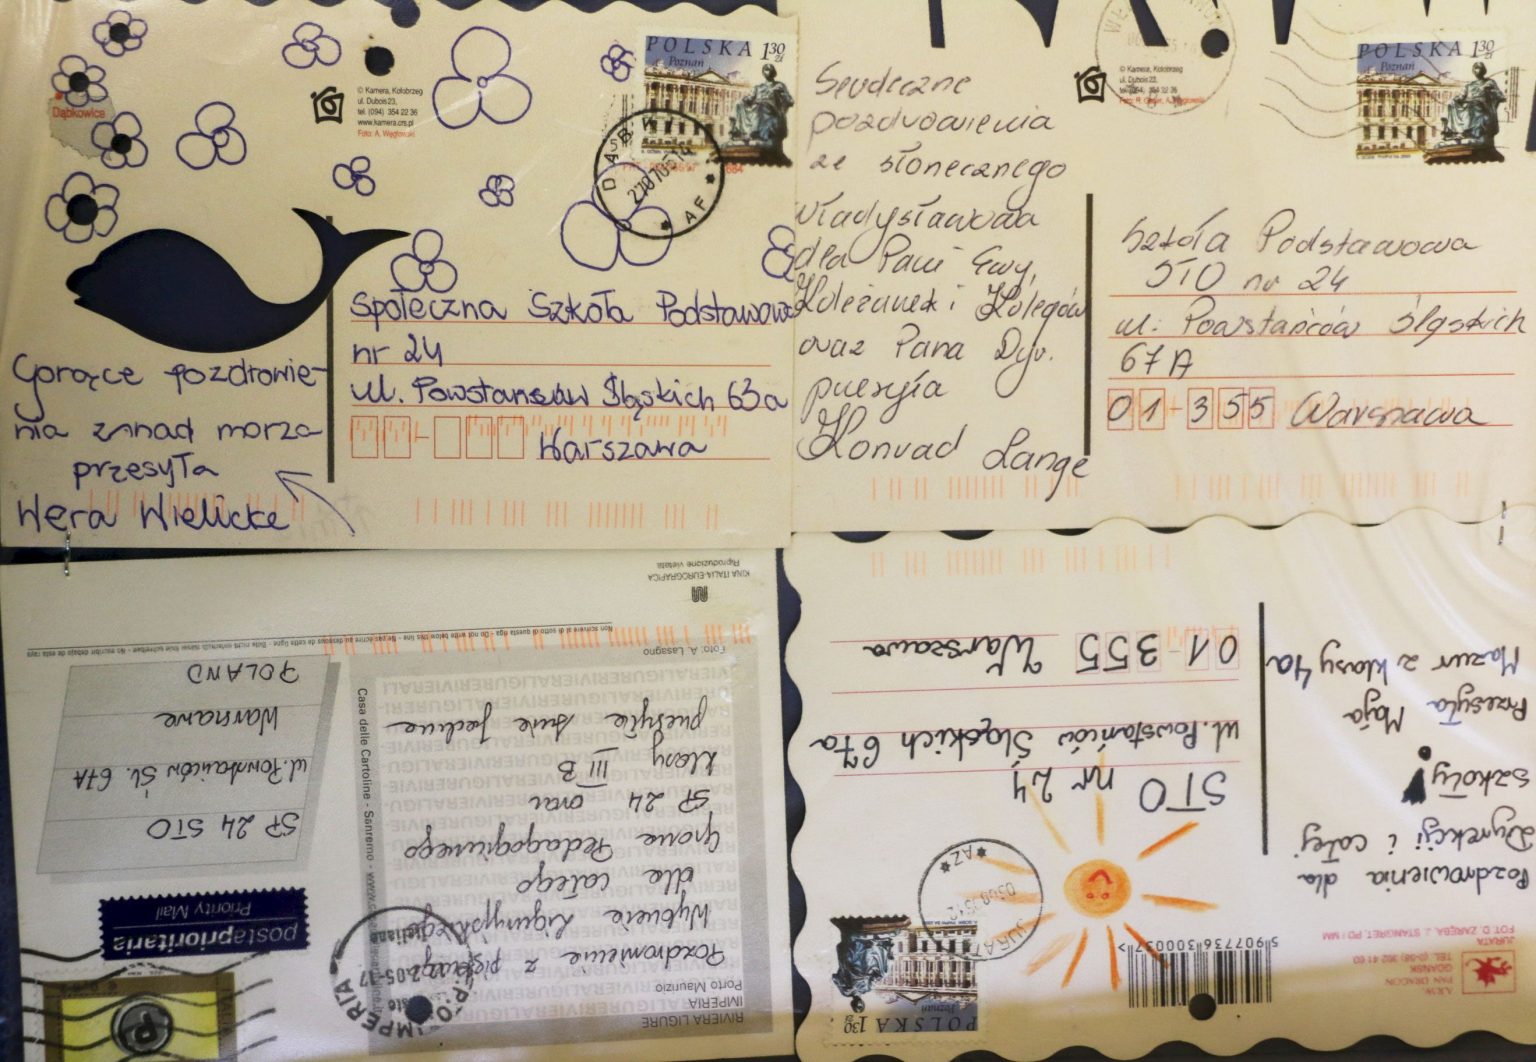 POLSKA 1 30 zł
Poznań
© Kamera, Kołobrzeg
ul. Dubois 23,
tel. (094) 354 22 36
www.kamera.crs.pl
Foto: A. Węglowski
Dąbkowice
Społeczna Szkoła Podstawowa
nr 24
ul. Powstańców Śląskich 63a
Warszawa
Gorące pozdrowie-
nia znad morza
przesyła
Wera Wielicke
POLSKA 1 30 zł
Poznań
© Kamera, Kołobrzeg
ul. Dubois 23,
tel. (094) 354 22 36
Serdeczne
pozdrowienia
ze słonecznego
Władysławowa
dla Pani Ewy,
Koleżanek i Kolegów
oraz Pana Dyr.
przesyła
Konrad Lange
Szkoła Podstawowa
STO nr 24
ul. Powstańców Śląskich
67A
01-355 Warszawa
RIVIERA LIGURE
IMPERIA
Porto Maurizio
Pozdrowienie z pięknego
Wybrzeże Liguryjskiego
dla całego
Grona Pedagogicznego
SP 24 oraz
klasy III B
przesyła
postaprioritaria
Priority Mail
SP 24 STO
ul. Powstańców Śl. 67A
Warszawa
POLAND
Casa delle Cartoline - Sanremo
Foto: A. Lasagno
KINA ITALIA-EUROGRAFICA
Riproduzione vietata
POLSKA 1 30 zł
Poznań
JURATA
FOT. D. ZARĘBA, J. STANGRET, PD / MM
A.R.W.
PAN DRAGON
GDAŃSK
5 907736 300057 >
Pozdrowienia dla
Dyrekcji i całej
szkoły!
Przesyła Maja
Mazur z klasy 4a
STO nr 24
ul. Powstańców Śląskich 67a
01-355 Warszawa